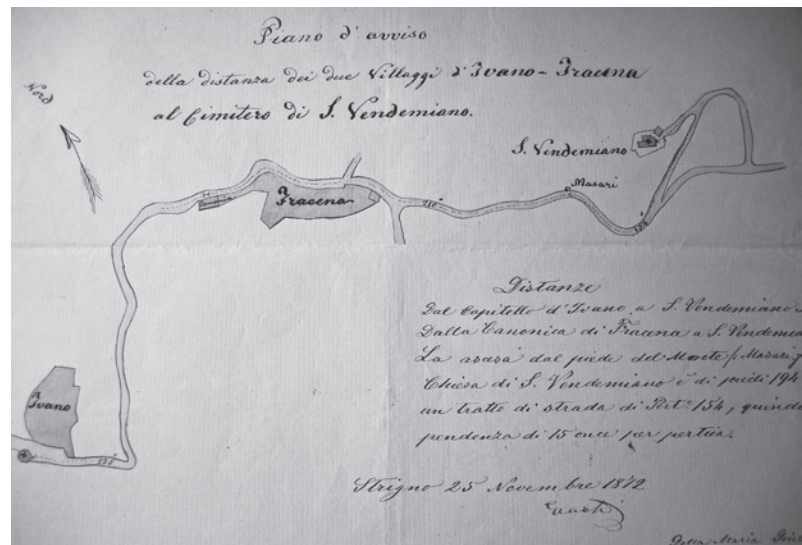 Piano d'avviso
della distanza dei due Villaggi d'Ivano-Fracena
al Cimitero di S. Vendemiano.
Nord
S. Vendemiano
Masari
Fracena
210
154
Ivano
237
Distanze
Dal Capitello d'Ivano a S. Vendemiano
Dalla Canonica di Fracena a S. Vendemia
La ascesa dal piede del Monte Masari
Chiesa di S. Vendemiano è di piedi 194
un tratto di strada di Pert.e 154, quindi
pendenza di 15 once per pertica.
Strigno 25 Novembre 1872
Della Maria